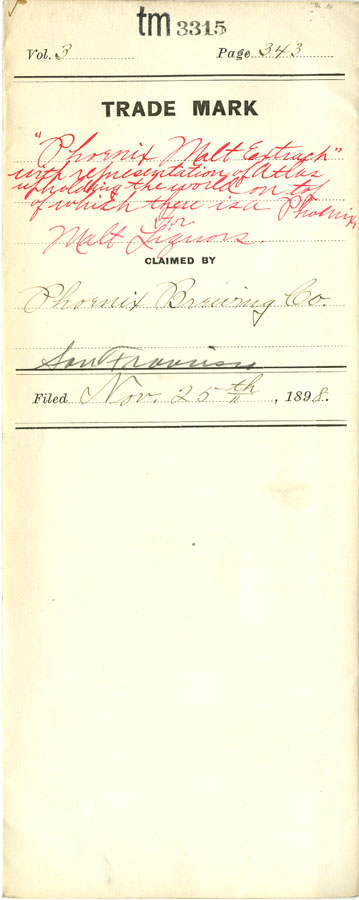 tm 3315
Vol. 3 Page 343
TRADE MARK
"Phoenix Malt Extract"
with representation of Atlas
upholding the world on top
of which there is a Phoenix,
for
Malt Liquors.
CLAIMED BY
Phoenix Brewing Co.
San Francisco
Filed Nov. 25th, 1898.